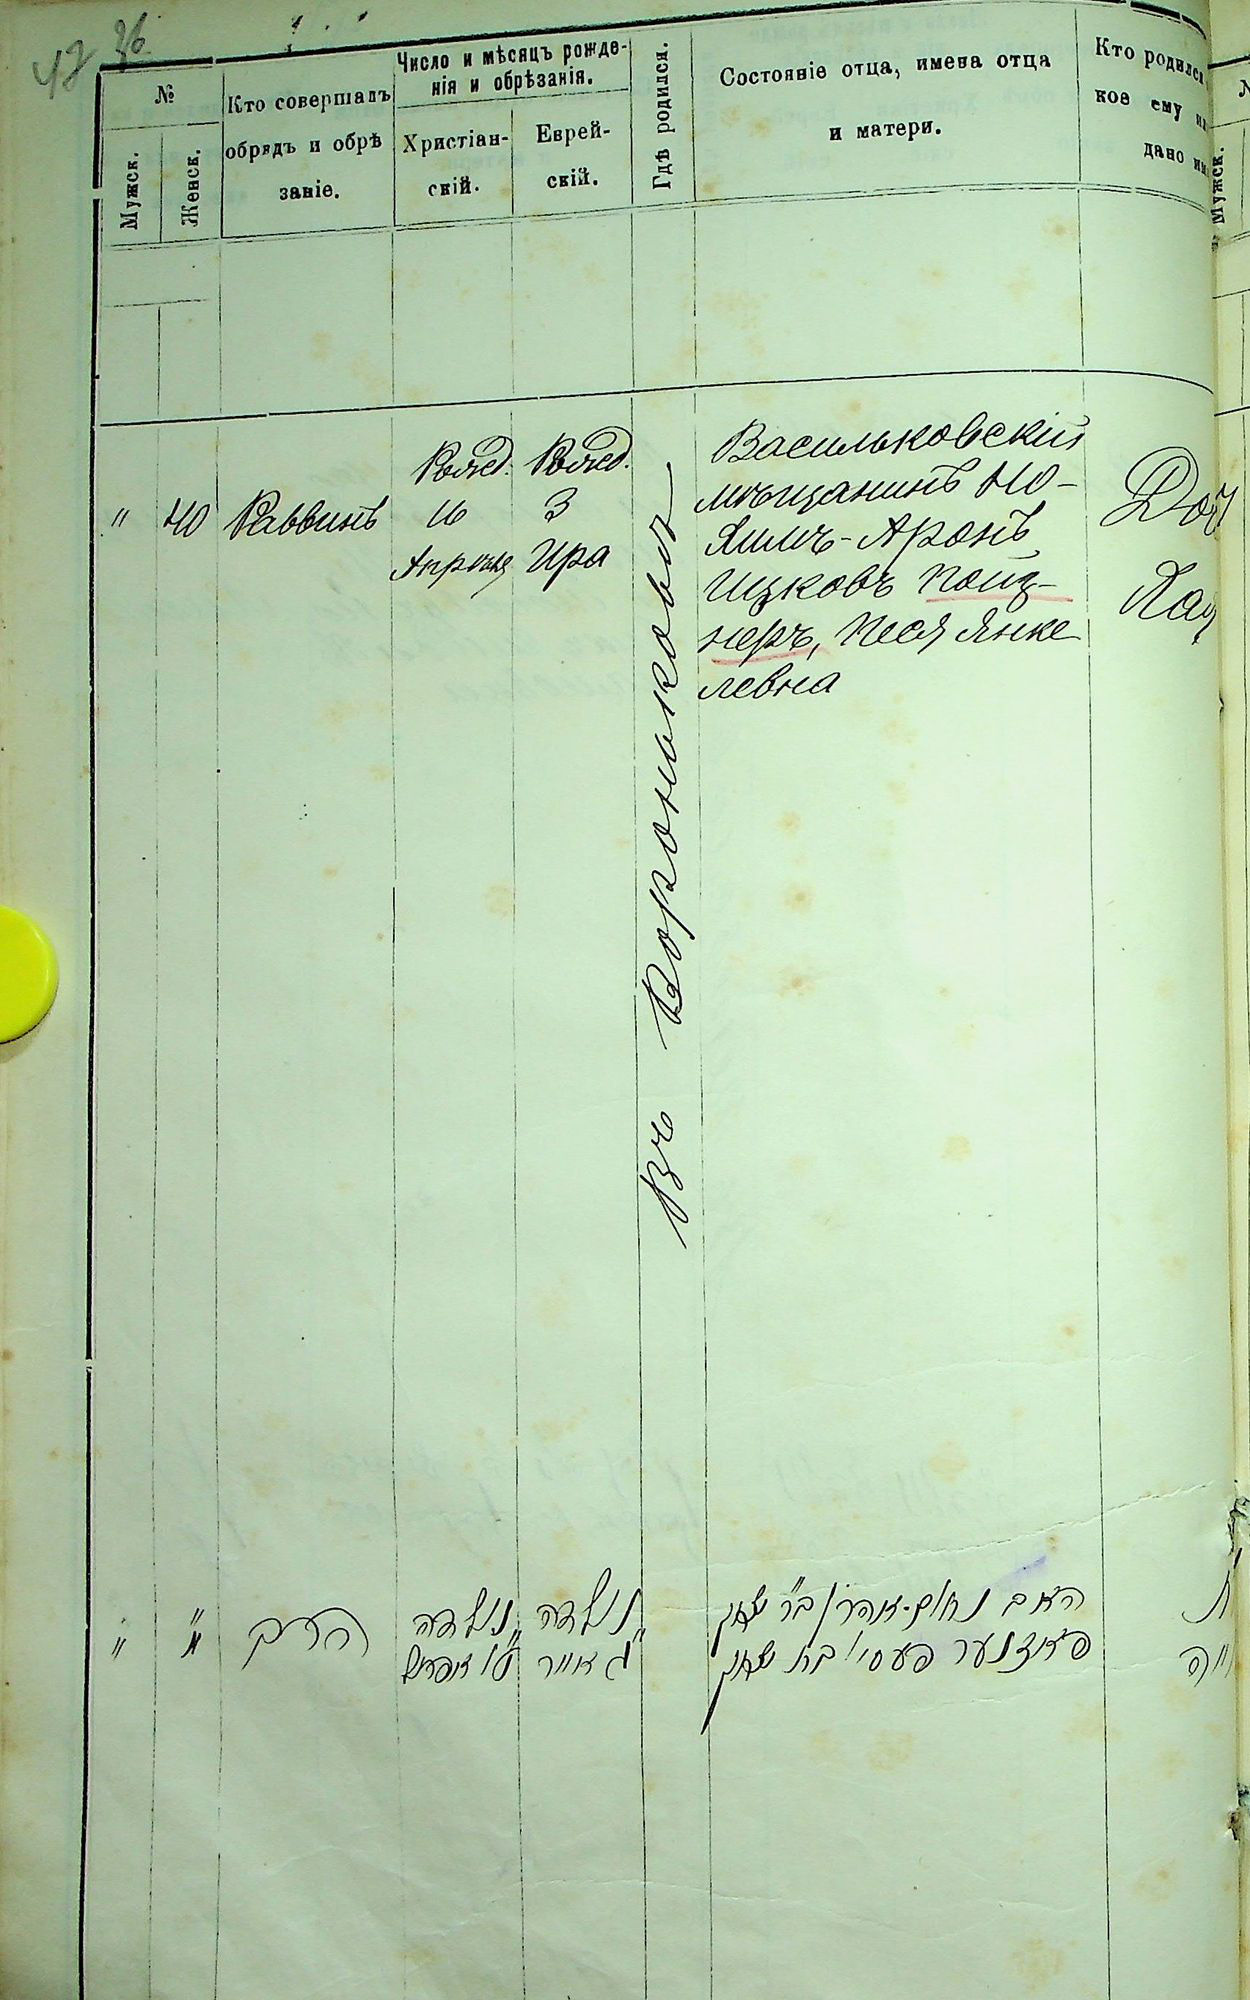 36
№
Мужск.
Женск.
Кто совершалъ
обрядъ и обрѣ
заніе.
Число и мѣсяцъ рожде-
нія и обрѣзанія.
Христіан-
скій.
Еврей-
скій.
Гдѣ родился.
Состояніе отца, имена отца
и матери.
Кто родился
кое ему
дано
Мужск.
"
40
Раввинъ
Рожд.
16
Апрѣля
Рожд.
3
Ира
Въ Вороньковѣ
Васильковскій
мѣщанинъ
Аронъ
Ицковъ Пойз-
неръ, Песя Янке
левна
Доч
"
"
הרב
נולדה
אפריל
נולדה
ג אייר
האב נחום-אהרן ב"ר יצחק
פויזנער פעסי בת יעקב